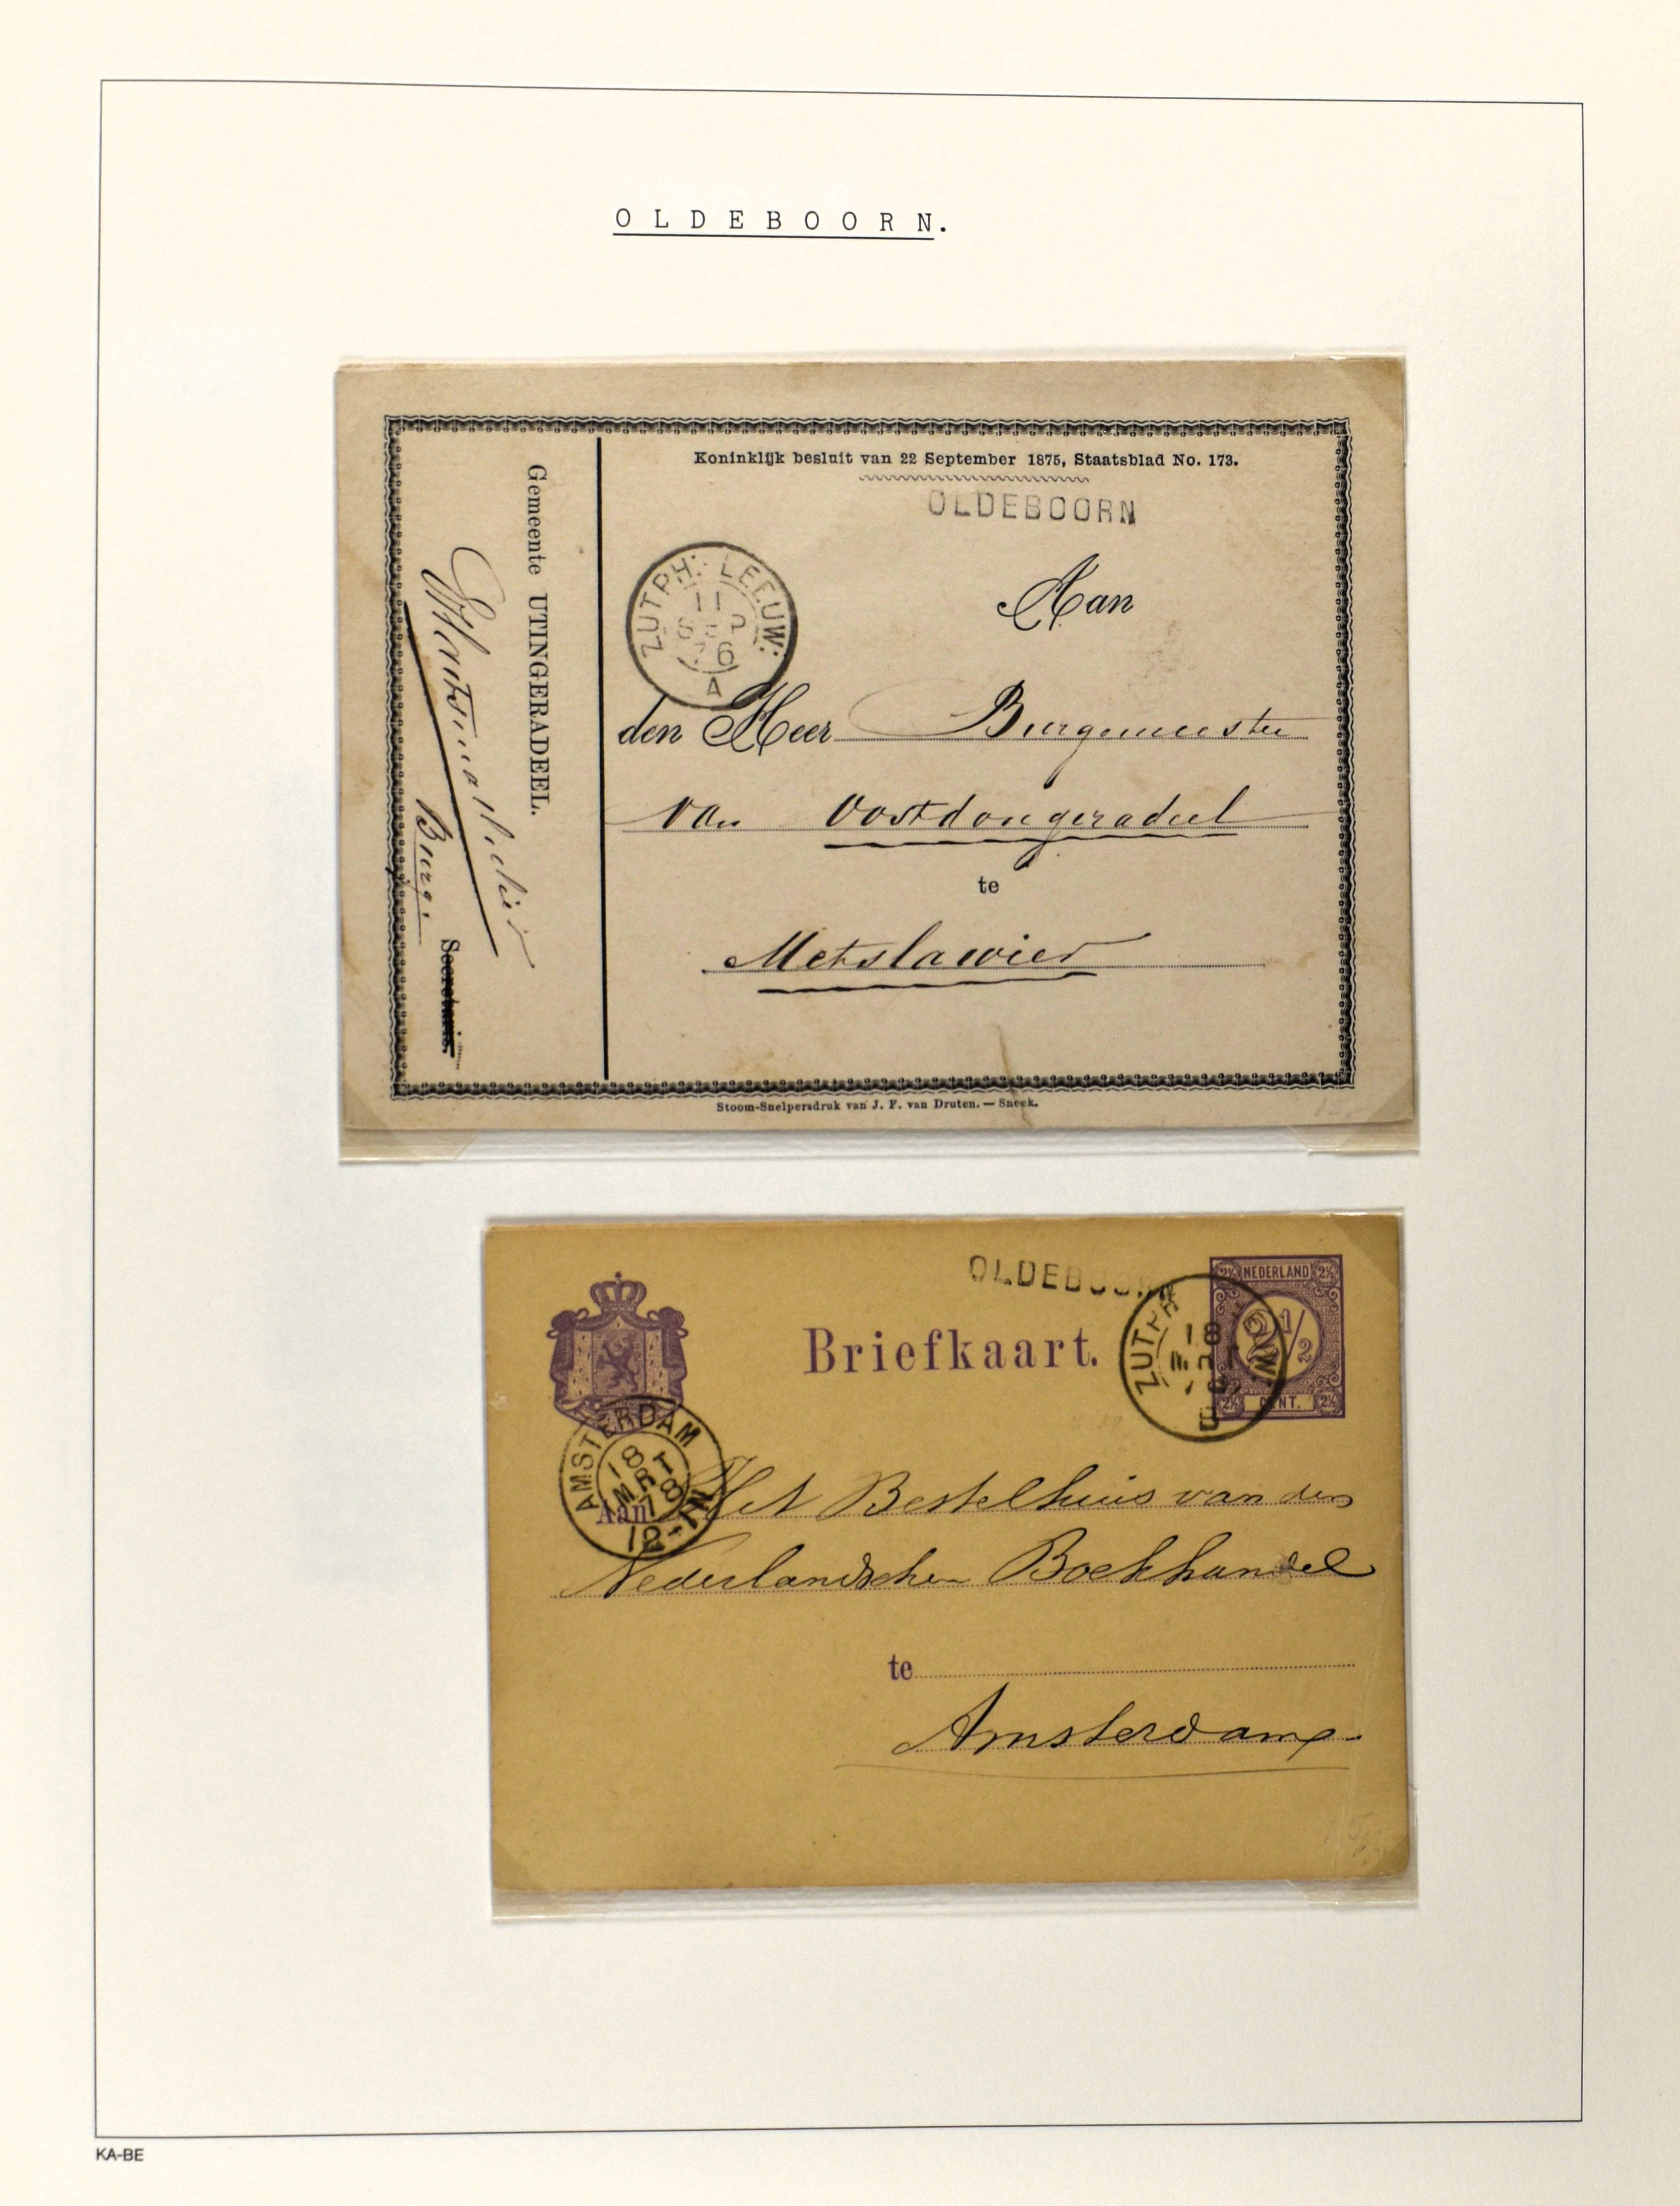 OLDEBOORN.
Koninklijk besluit van 22 September 1875, Staatsblad No. 173.
OLDEBOORN
ZUTPH: LEEUW:
11
SEP
76
A
Aan
den Heer Burgemeester
van Oostdongeradeel
te
Metslawier
Gemeente UTINGERADEEL.
Burg.
Secretaris.
Stoom-Snelpersdruk van J. F. van Druten. — Sneek.
OLDEBOORN
NEDERLAND
2½ 2½
2½
2½ CENT. 2½
Briefkaart.
ZUTPH W:
18
B
AMSTERDAM
18 MRT 78
Aan Het Bestelhuis van den
Nederlandschen Boekhandel
te
Amsterdam.
KA-BE